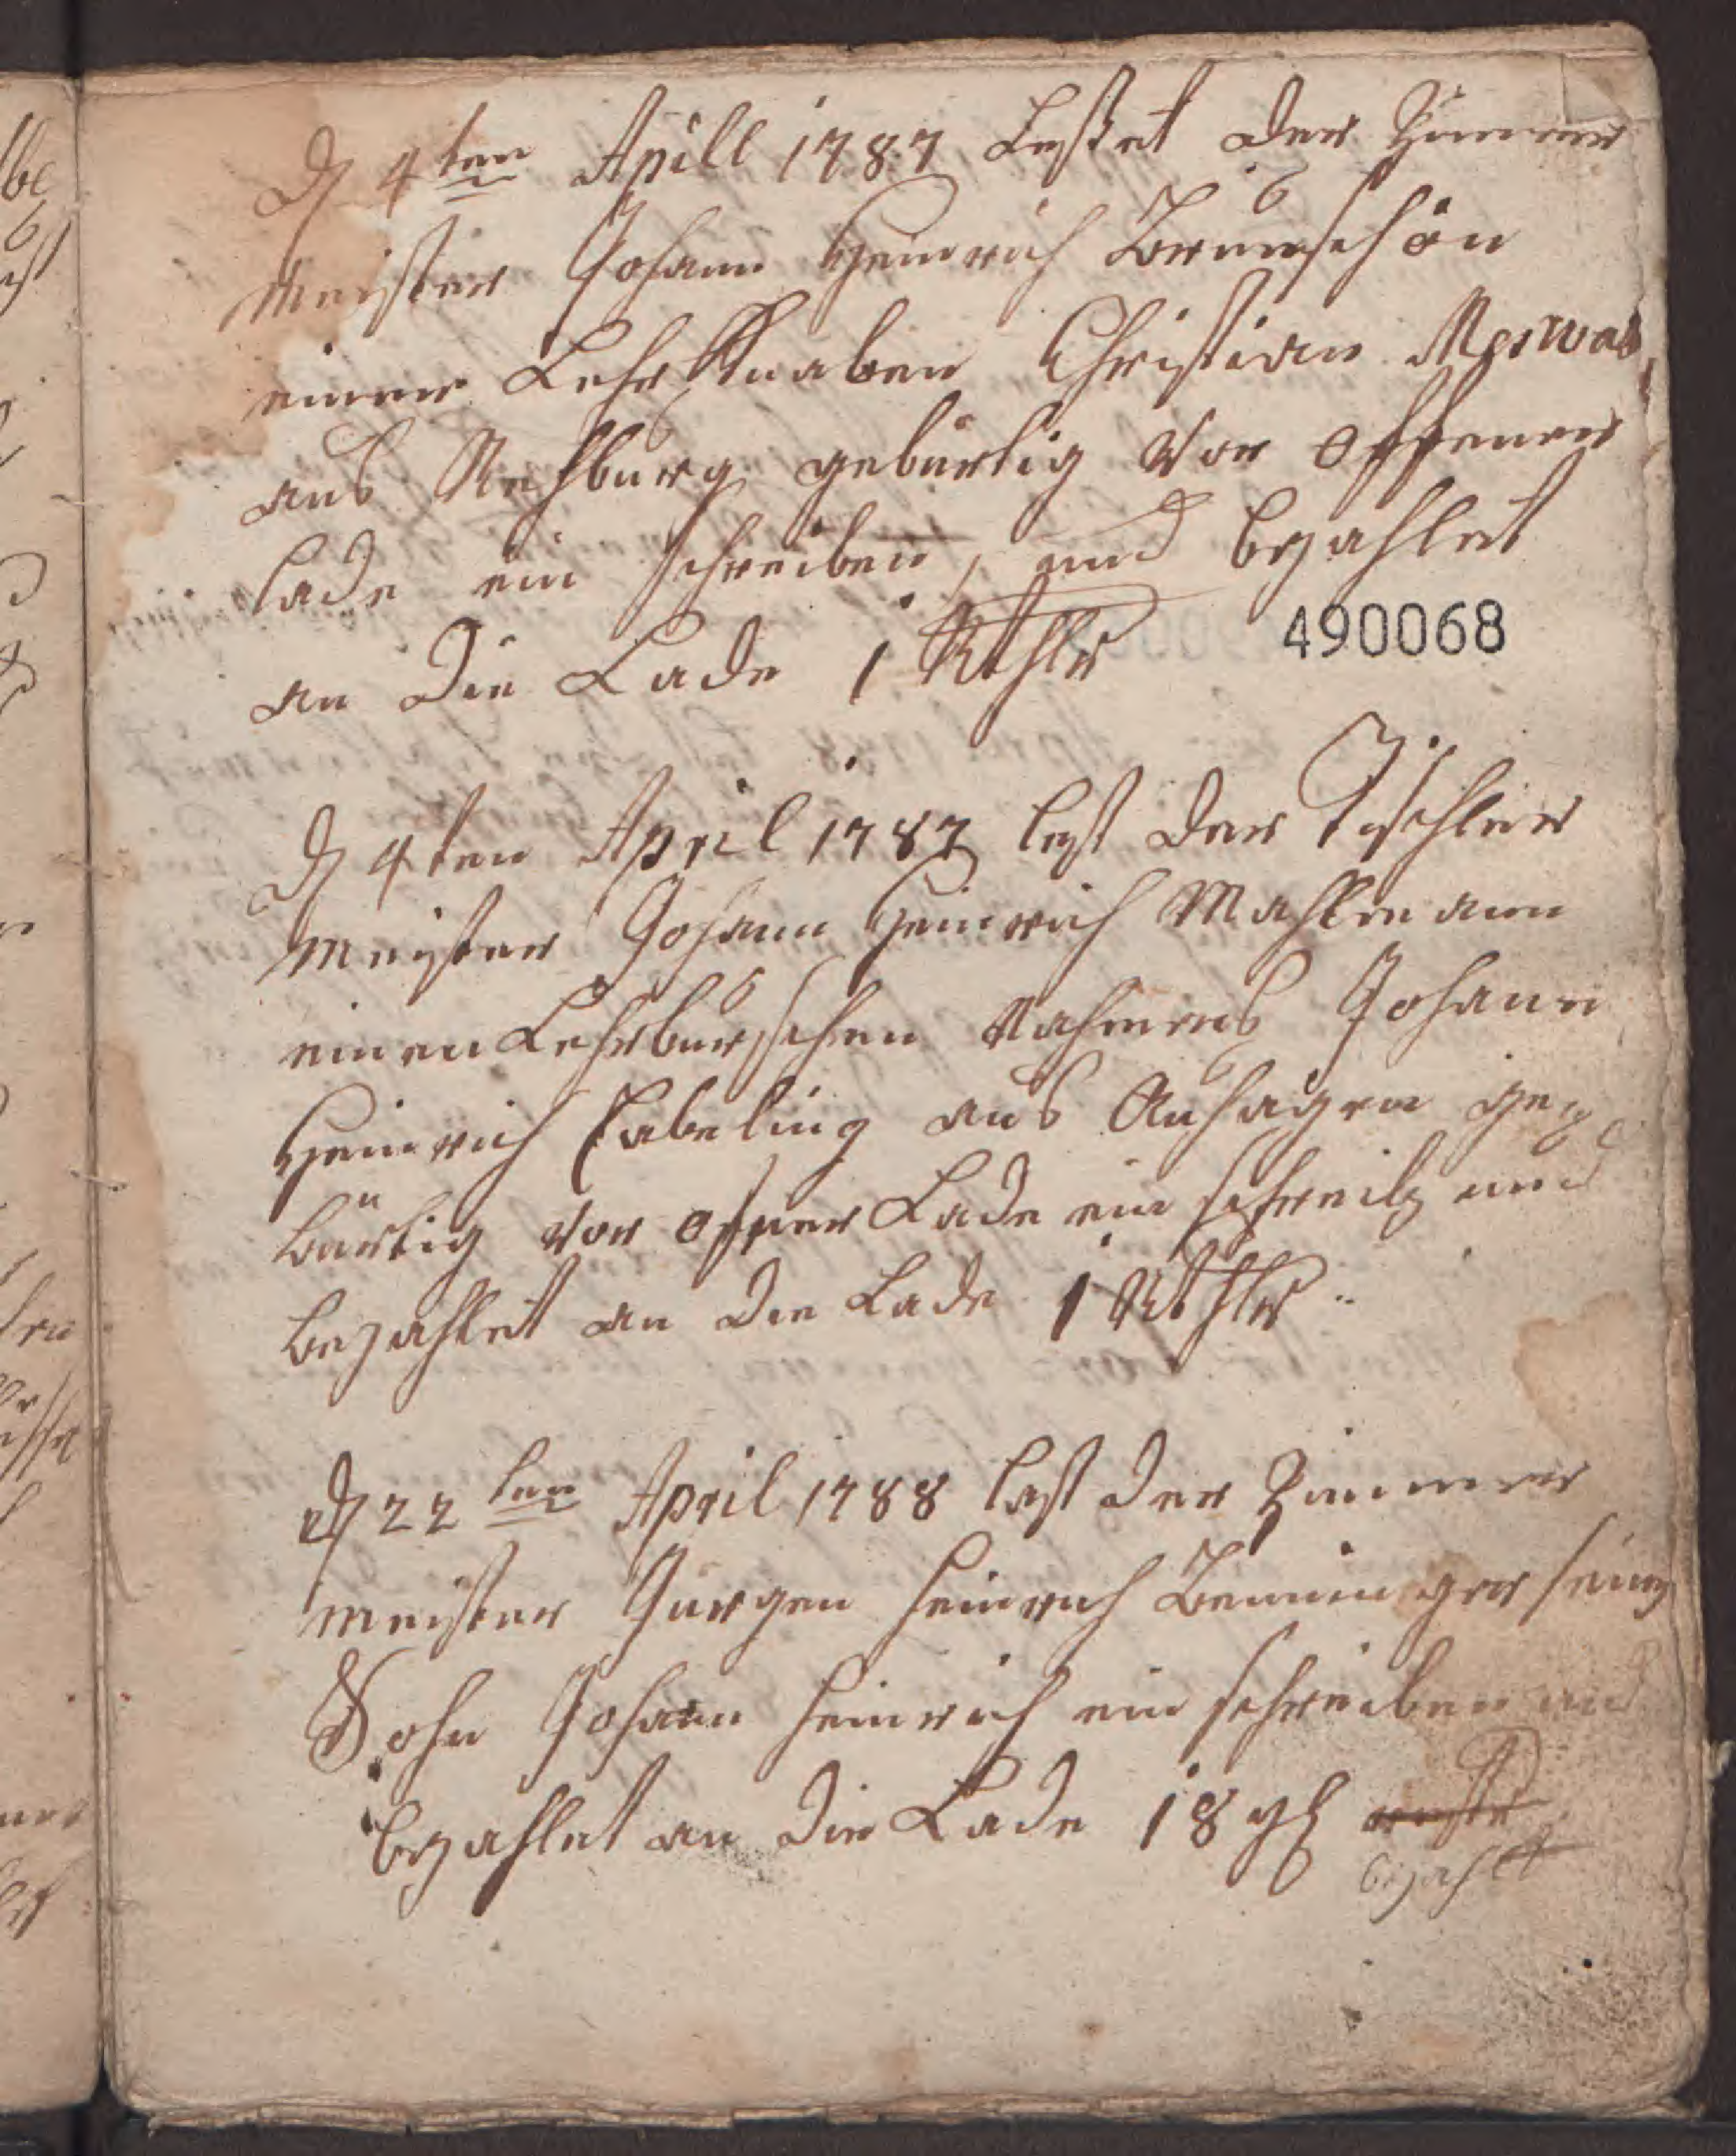 D 4ten Aprill 1787 Lesset der Zimmer
Meister Johann Heinrich Brunschön
einen Lehr Knaben Christian Meswab
aus Rehburg gebürtig vor offener
Lade ein schreiben, und bezahlet
an die Lade 1 Rthlr
490068
D 4ten April 1787 lest der Tischler
Meister Johann Heinrich Mahlmann
einen Lehrburschen Nahmens Johann
Heinrich Eabeling aus Auhagen ge
bürtig vor offner Lade ein schreib und
bezahlet an die Lade 1 Rthlr
D 22ten April 1788 last der Zimmer
meister Jurgen Heinrich Benninger sein
Sohn Johann Heinrich ein schreiben und
bezahlet an die Lade 18 gl
bezahlt